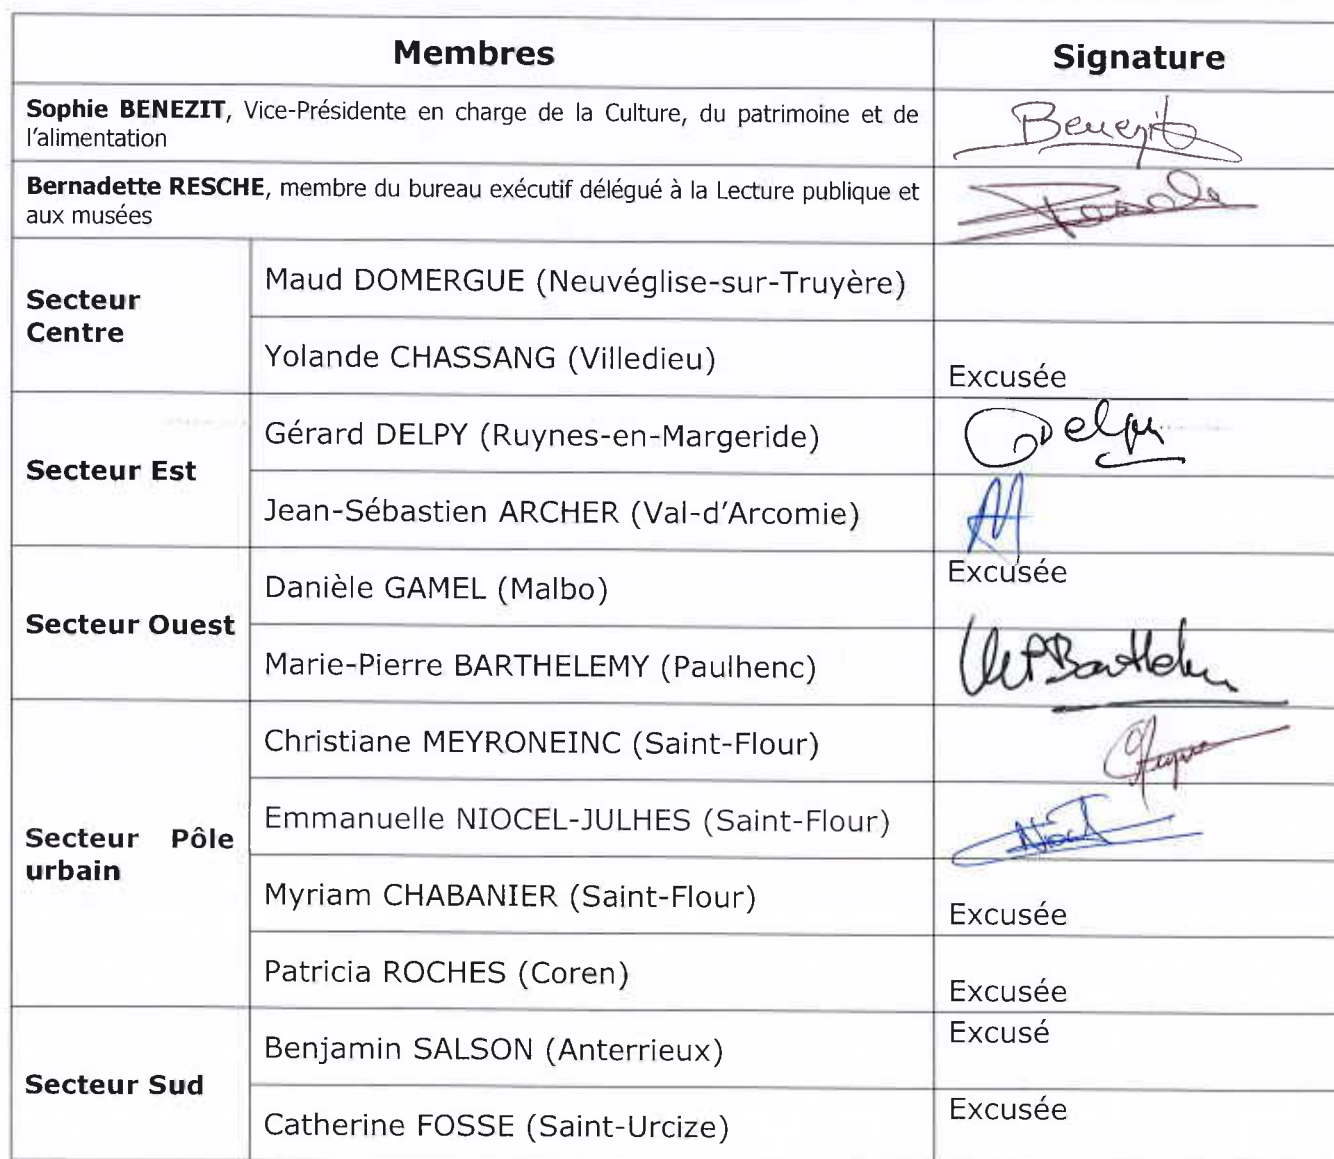 Membres Signature
Sophie BENEZIT, Vice-Présidente en charge de la Culture, du patrimoine et de
l'alimentation
Benezit
Bernadette RESCHE, membre du bureau exécutif délégué à la Lecture publique et
aux musées
Secteur
Centre
Maud DOMERGUE (Neuvéglise-sur-Truyère)
Yolande CHASSANG (Villedieu)
Excusée
Secteur Est
Gérard DELPY (Ruynes-en-Margeride)
Delpy
Jean-Sébastien ARCHER (Val-d'Arcomie)
Secteur Ouest
Danièle GAMEL (Malbo)
Excusée
Marie-Pierre BARTHELEMY (Paulhenc)
Secteur Pôle
urbain
Christiane MEYRONEINC (Saint-Flour)
Emmanuelle NIOCEL-JULHES (Saint-Flour)
Myriam CHABANIER (Saint-Flour)
Excusée
Patricia ROCHES (Coren)
Excusée
Secteur Sud
Benjamin SALSON (Anterrieux)
Excusé
Catherine FOSSE (Saint-Urcize)
Excusée